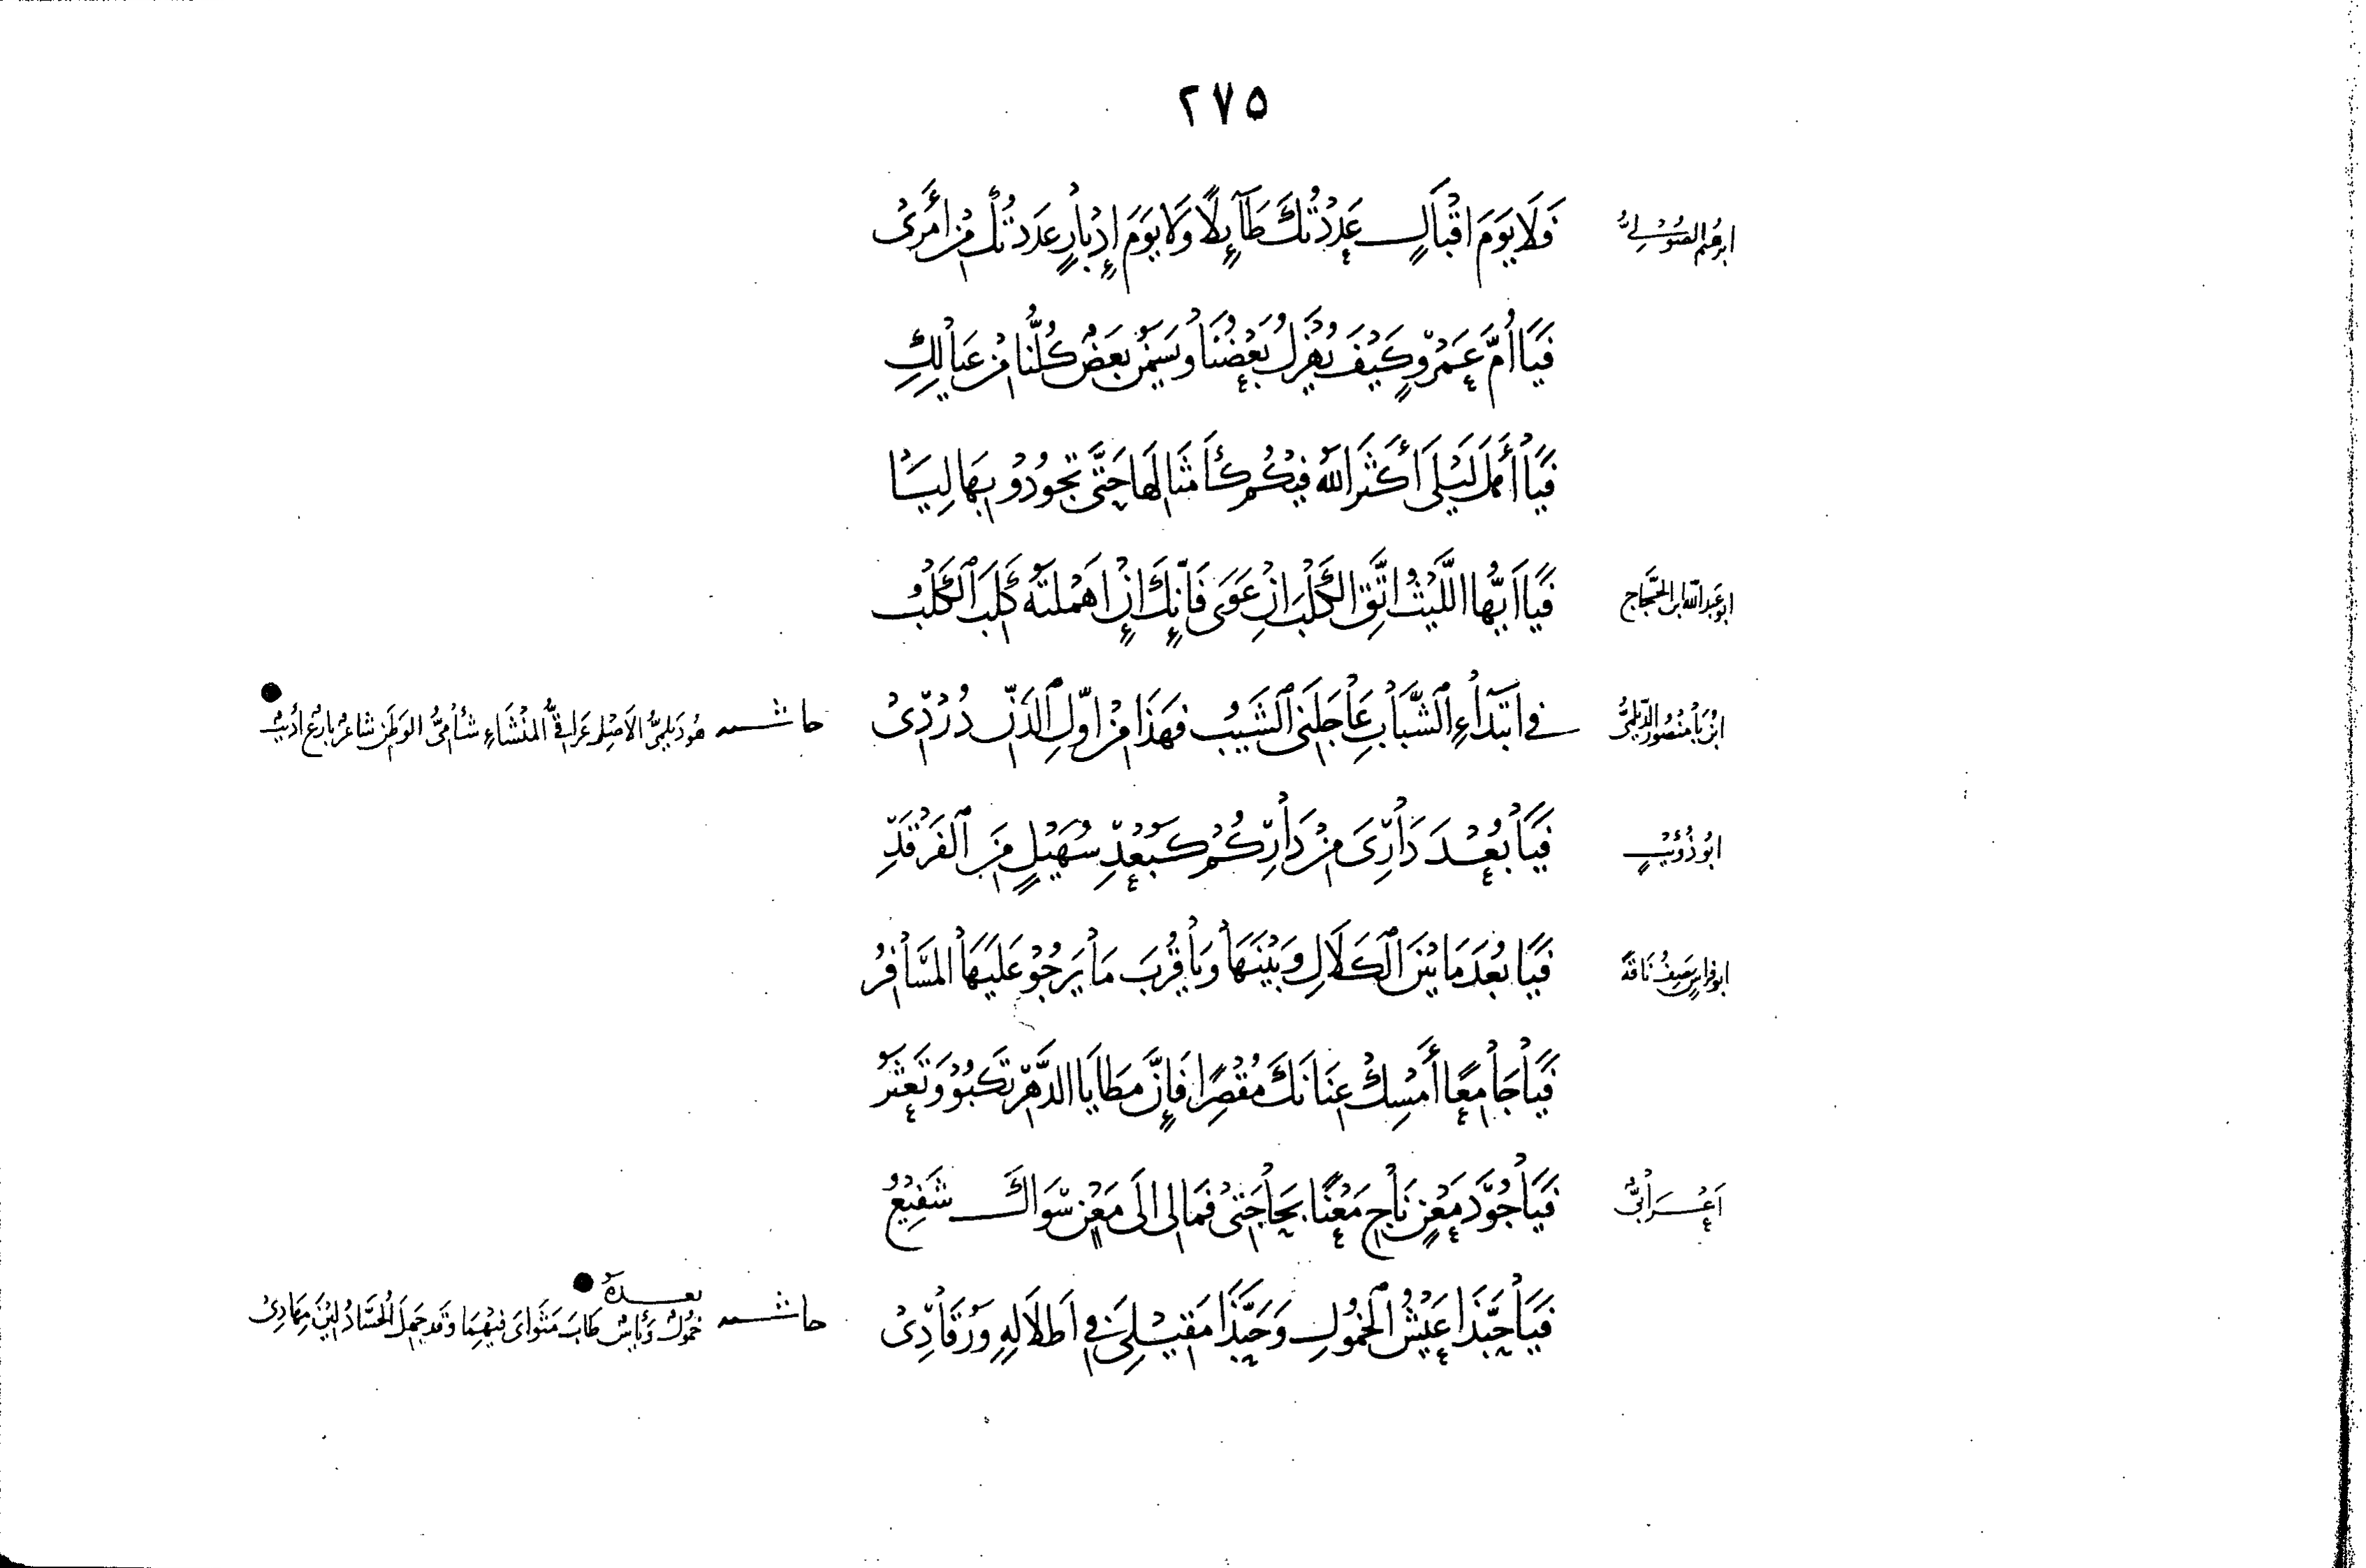 ٢٧٥
ابرهيم الصولي فَلَا يَوْمَ اقْبَالٍ عَدَدْتُكَ طَآئِلًا وَلَا يَوْمَ إِدْبَارٍ عَدَدتُكَ مِنْ أَمْرِى
فَيَا أُمَّ عَمْرٍو كَيْفَ يُهْزَلُ بَعْضُنَا وَيَسْمَنُ بَعْضٌ كُلُّنَا مِنْ عِيَالِكِ
فَيَا أَهْلَ لَيْلَى أَكْثَرَ اللَّهُ فِيكُمُ كَأَمْثَالِهَا حَتَّى تَجُودُوْا بِهَا لِيَا
ابو عبد الله ابن الحجّاج فَيَا اَيُّهَا اللَّيْثُ اتَّقِ الكَلْبَ اِنْ عَوَى فَاِنَّكَ اِنْ اَهْمَلْتَهُ كَلِبَ الكَلْبُ
ابن با منصور الديلميُّ فى ابْتِدَاءِ الشَّبَابِ عَاجَلَنِى الشَّيْبُ فَهَذَا مِنْ اَوَّلِ الدَّنِّ دُرْدِىْ حاشيه هُوَ دَيلميُّ الاَصْل عراقىُّ المنشاءِ شأمىُّ الوَطَن شاعرٌ بارعٌ اديبٌ
ابو ذؤيبٍ فَيَا بُعْدَ دَارِىَ مِنْ دَارِكُم كَبُعْدِ سُهَيْلٍ مِنَ الفَرْقَدِ
ابو فراس يصف ناقةً فَيَا بُعْدَ مَا بَيْنَ الكَلَالِ وَبَيْنَهَا وَيَا قُرْبَ مَا يَرْجُوْ عَلَيْهَا المُسَافِرُ
فَيَا جَامِعًا أَمْسِكْ عِنَانَكَ مُقْصِرًا فَإِنَّ مَطَايَا الدَّهْرِ تَكْبُوْ وَتَعْثَرُ
اَعْرَابىٌّ فَيَا جُوْدَ مَعْنٍ نَاجِ مَعْنًا بِحَاجَتِىْ فَمَا لِى الَى مَعْنٍ سِوَاكَ شَفِيْعُ
فَيَا حَبَّذَا عَيْشُ الخُمُولِ وَحَبَّذَا مَقِيْلِىَ فِى اَطْلَالِهِ وَرُقَادِىْ حاشيه بعده
خمُولٌ وَيَأسٌ طَابَ مَثْوَاىَ فيْهِمَا وَقد جَهِلَ الحُسَّادُ لِيْنَ مِهَادِىْ